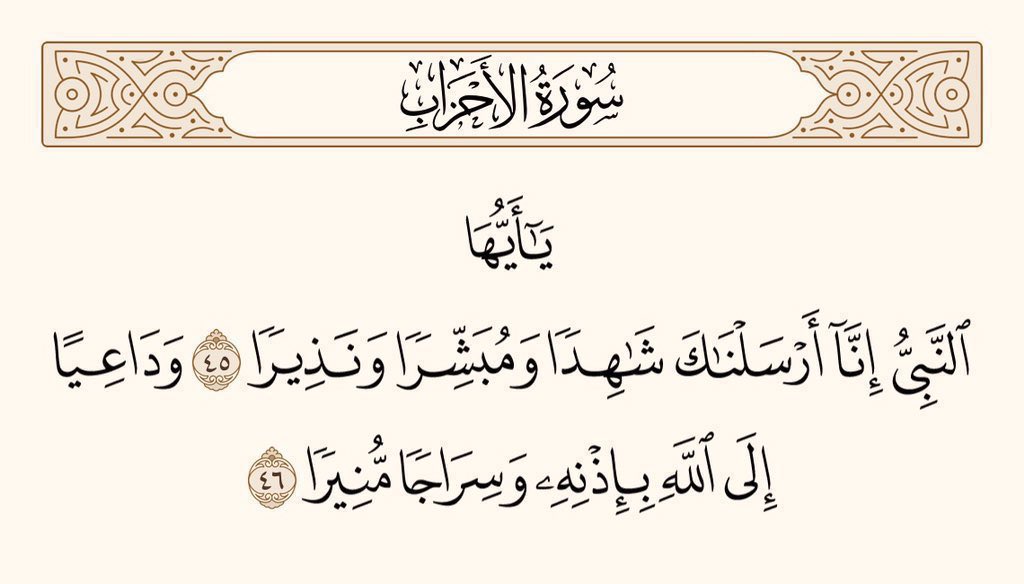 سُورَةُ الأَحْزَابِ
يَـٰٓأَيُّهَا
ٱلنَّبِىُّ إِنَّآ أَرْسَلْنَـٰكَ شَـٰهِدًا وَمُبَشِّرًا وَنَذِيرًا ٤٥ وَدَاعِيًا
إِلَى ٱللَّهِ بِإِذْنِهِۦ وَسِرَاجًا مُّنِيرًا ٤٦